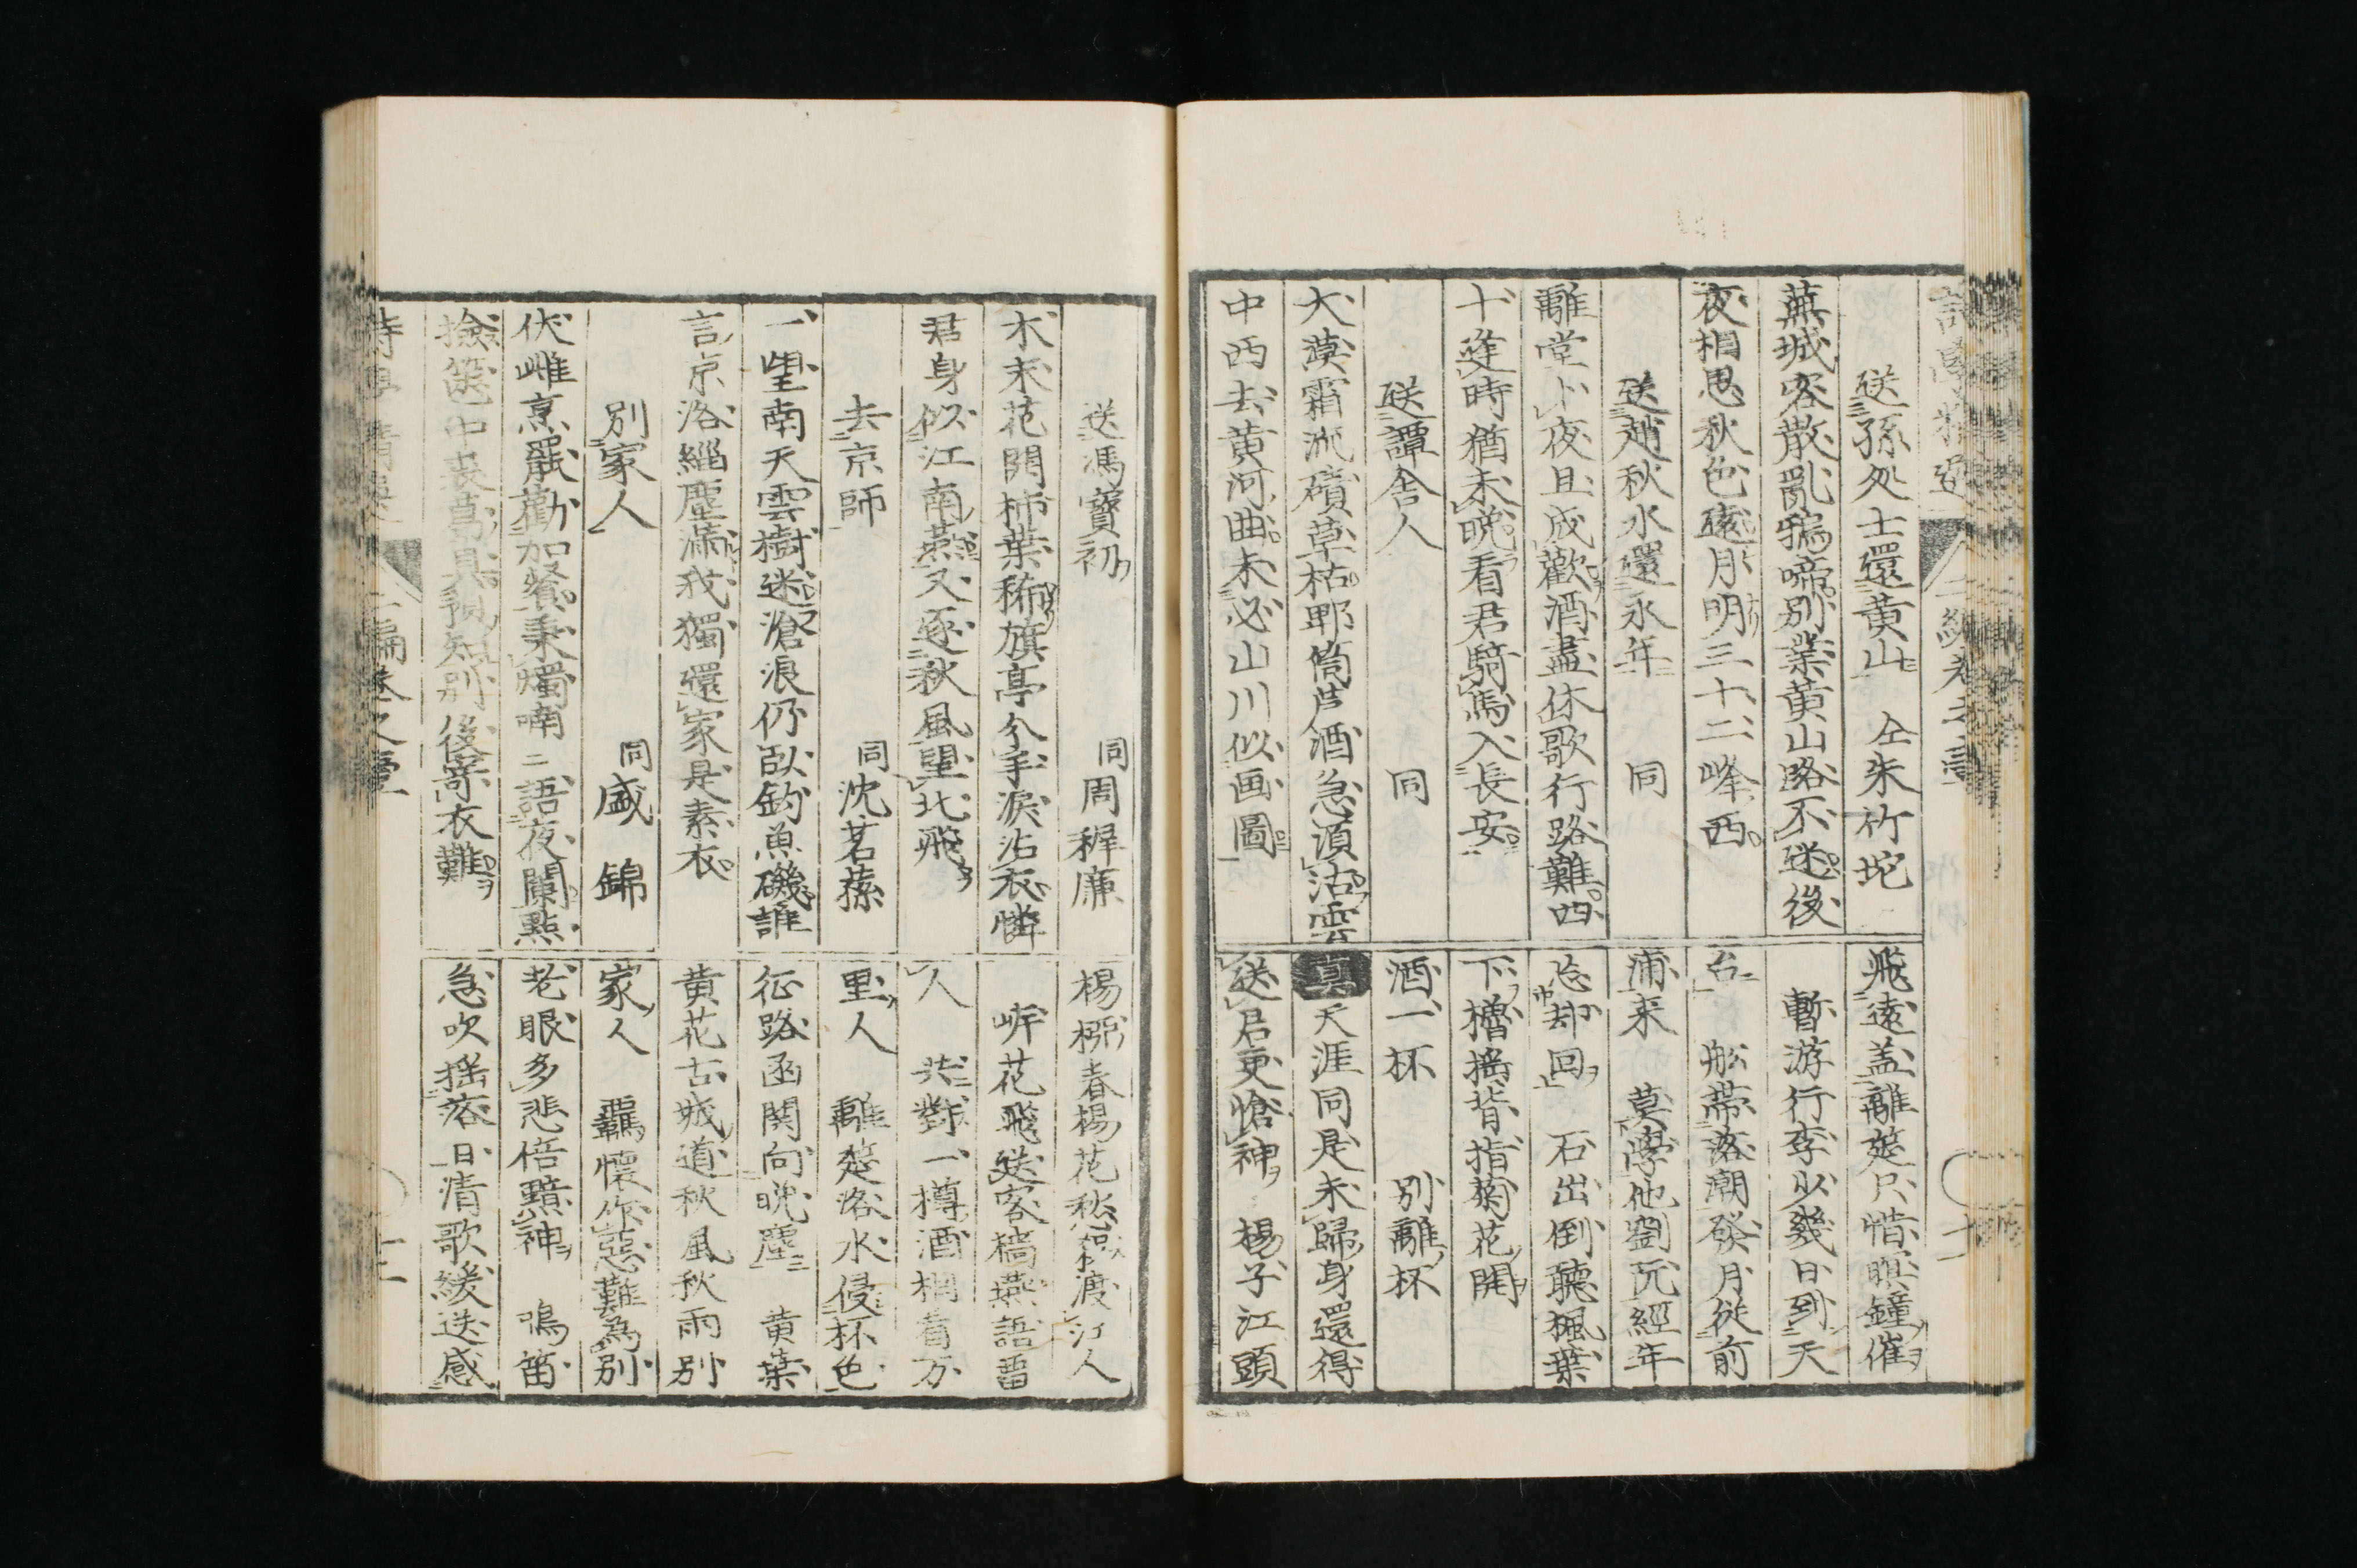 送孫処士還黄山 仝朱竹垞
蕪城客散亂鴉啼別業黄山路不迷後
夜相思秋色遠月明三十二峰西
送趙秋水還永年 同
離堂卜夜且成歡酒盡休歌行路難四
十逢時猶未晩看君騎馬入長安
送譚舎人 同
大漠霜沈磧草枯郫筒芦酒急須沽雲
中西去黄河曲未必山川似画圖
飛遠盖離筵只惜暝鐘催
暫游行李少幾日到天
台 舩帯落潮發月従前
浦来 莫學他劉阮經年
忘却回 石出倒聽楓葉
下櫓揺背指菊花開
酒一杯 別離杯
真天涯同是未歸身還得
送君更愴神 楊子江頭
送馮寳初 同周稺廉
木末花開柿葉稀旗亭分手涙沾衣憐
君身似江南燕又逐秋風望北飛
去京師 同沈茗蓀
一望南天雲樹迷滄浪仍臥釣魚磯誰
言京洛緇塵滿我獨還家是素衣
別家人 同盛 錦
伏雌烹罷勸加餐秉燭喃二語夜闌點
撿篋中裘葛具預知別後寄衣難
楊栁春楊花愁渡江人
岍花飛送客檣燕語畱
人 共對一樽酒相看万
里人 離筵洛水侵杯色
征路函関向晩塵 黄葉
黄花古城道秋風秋雨別
家人 羈懐作惡難為別
老眼多悲倍黯神 鳴笛
急吹揺落日清歌緩送感
二編巻之壹
十二